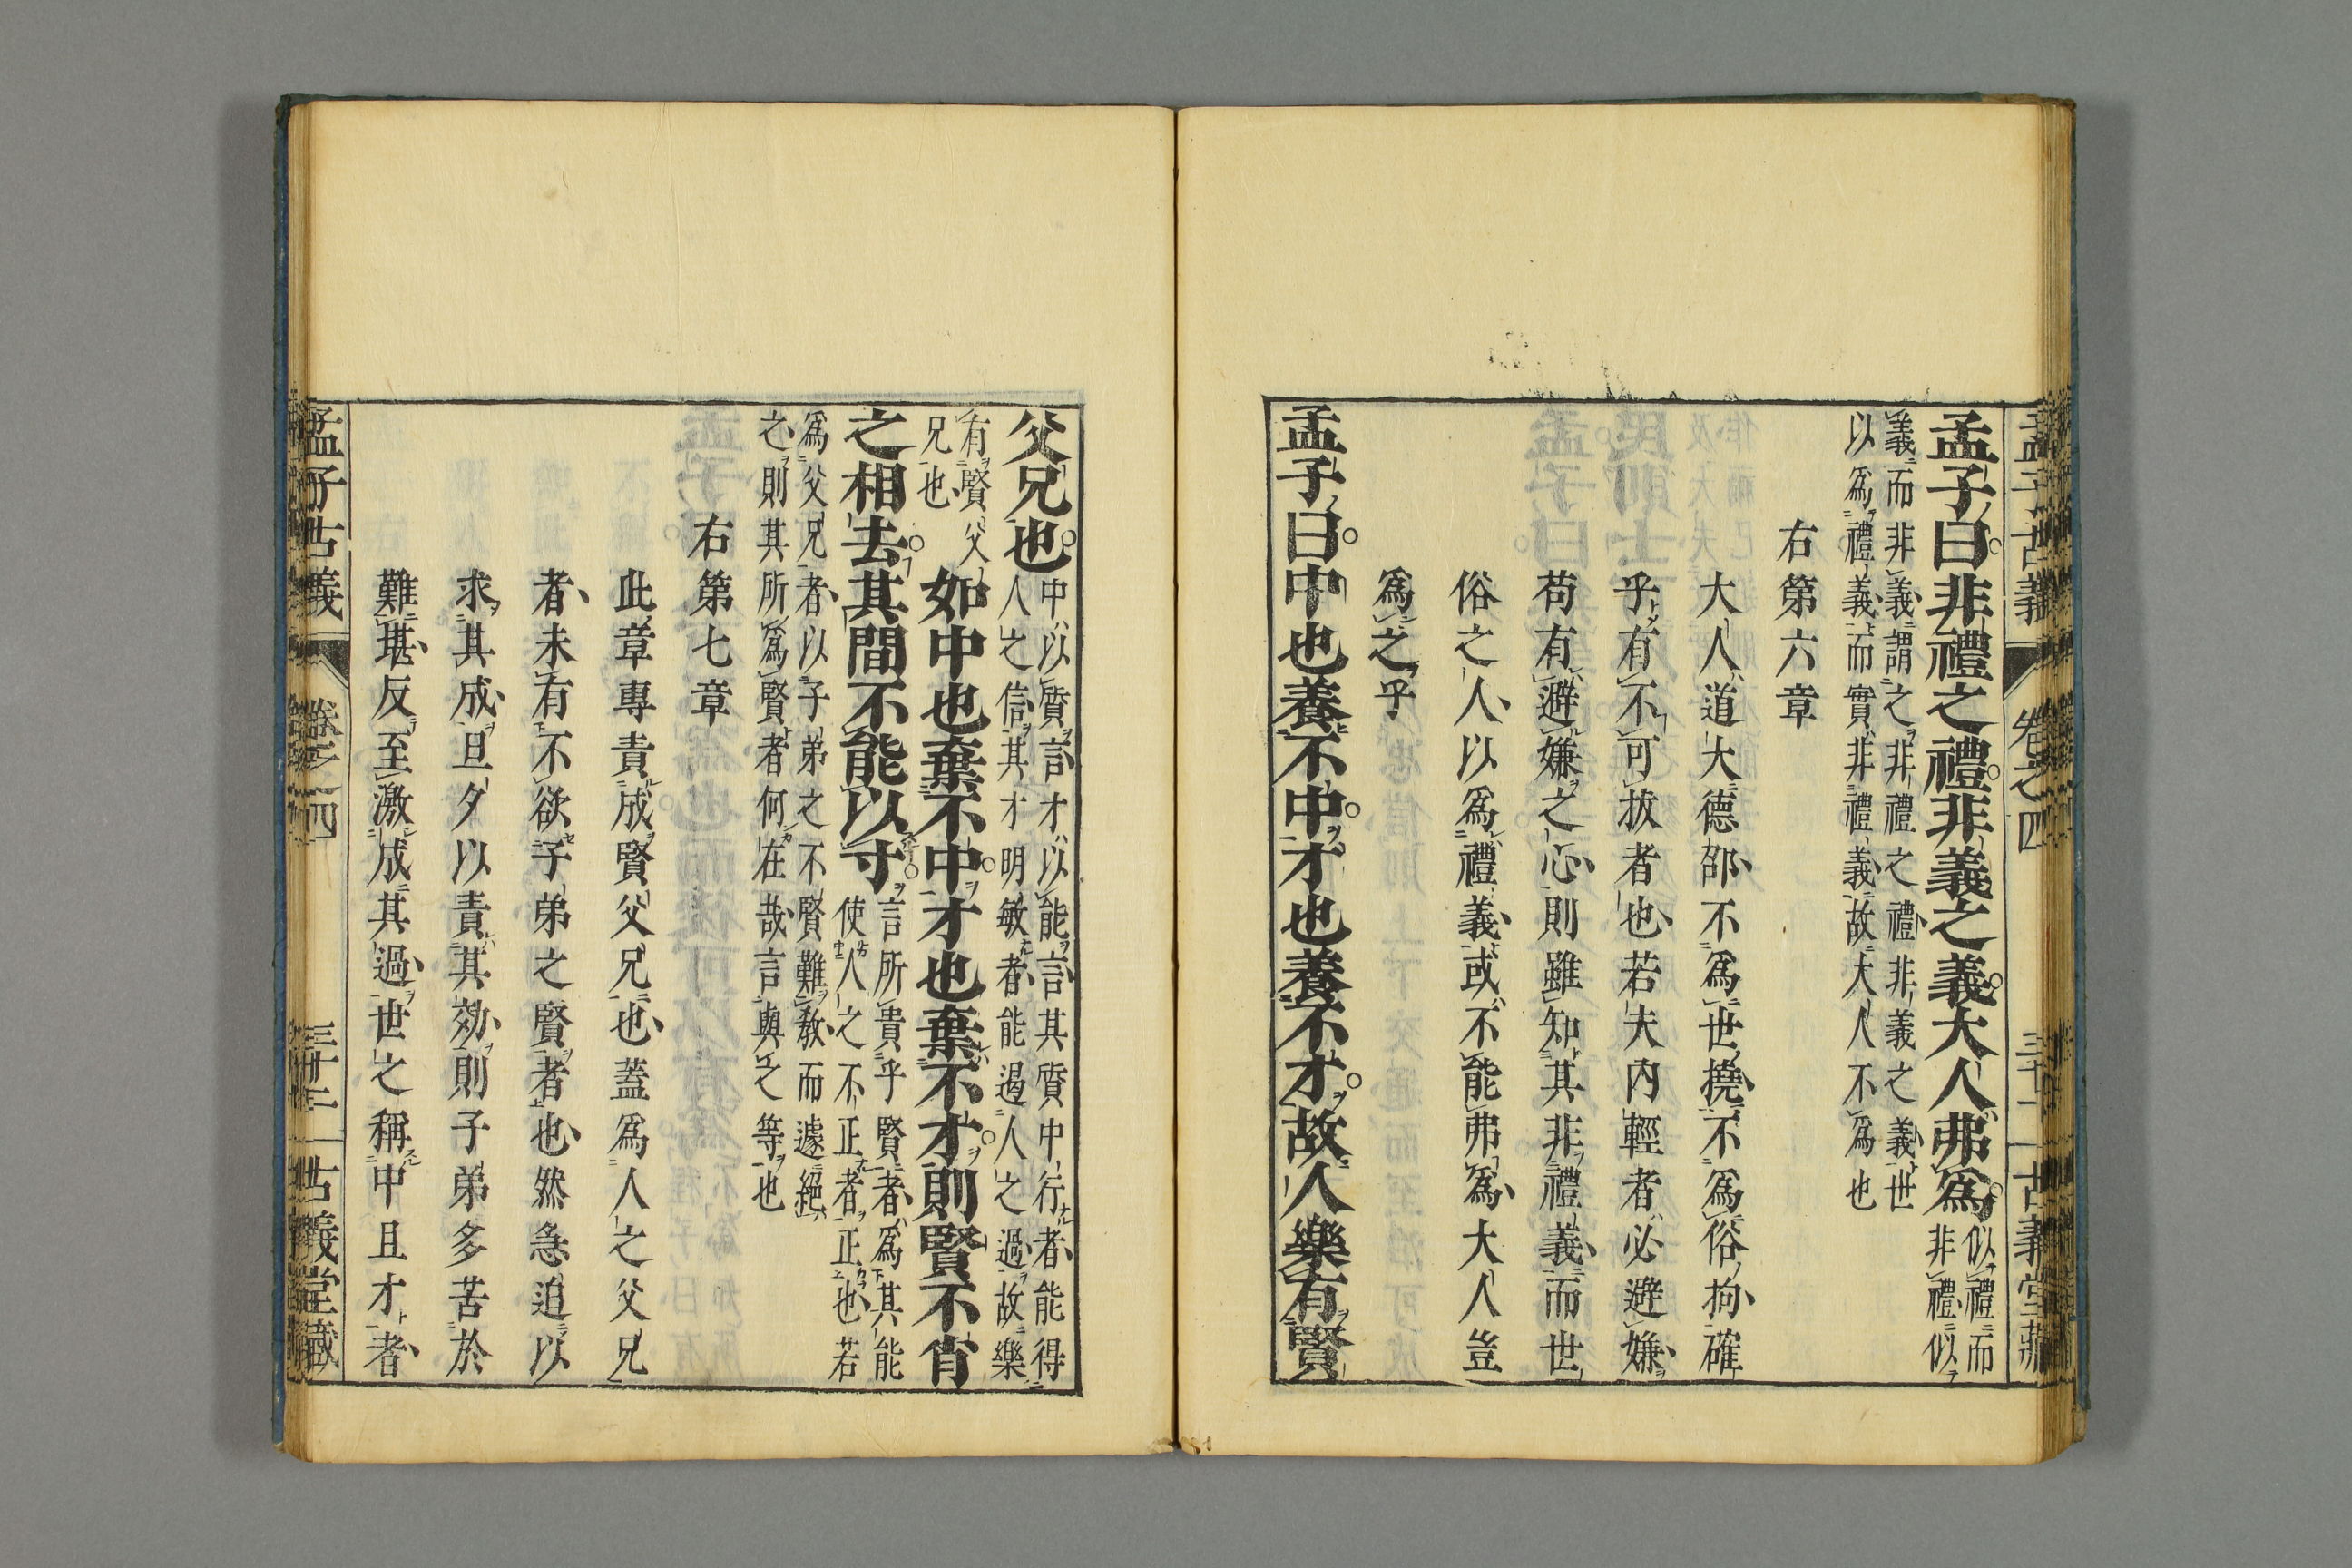 孟子古義 卷之四 三十二 古義堂藏
孟子曰非禮之禮非義之義大人弗爲
似禮而
非禮似
義而非義謂之非禮之禮非義之義世
以爲禮義而實非禮義故大人不爲也
右第六章
大人道大德卲不爲世撓不爲俗拘確
乎有不可拔者也若夫內輕者必避嫌
苟有避嫌之心則雖知其非禮義而世
俗之人以爲禮義或不能弗爲大人豈
爲之乎
孟子曰中也養不中才也養不才故人樂有賢
父兄也
中以質言才以能言其質中行者能得
人之信其才明敏者能遏人之過故樂
有賢父
兄也
如中也棄不中才也棄不才則賢不肖
之相去其間不能以寸
言所貴乎賢者爲其能
使人之不正者正也若
爲父兄者以子弟之不賢難教而遽絕
之則其所爲賢者何在哉言與之等也
右第七章
此章專責成賢父兄也蓋爲人之父兄
者未有不欲子弟之賢者也然急迫以
求其成旦夕以責其効則子弟多苦於
難堪反至激成其過世之稱中且才者
孟子古義 卷之四 三十二 古義堂藏